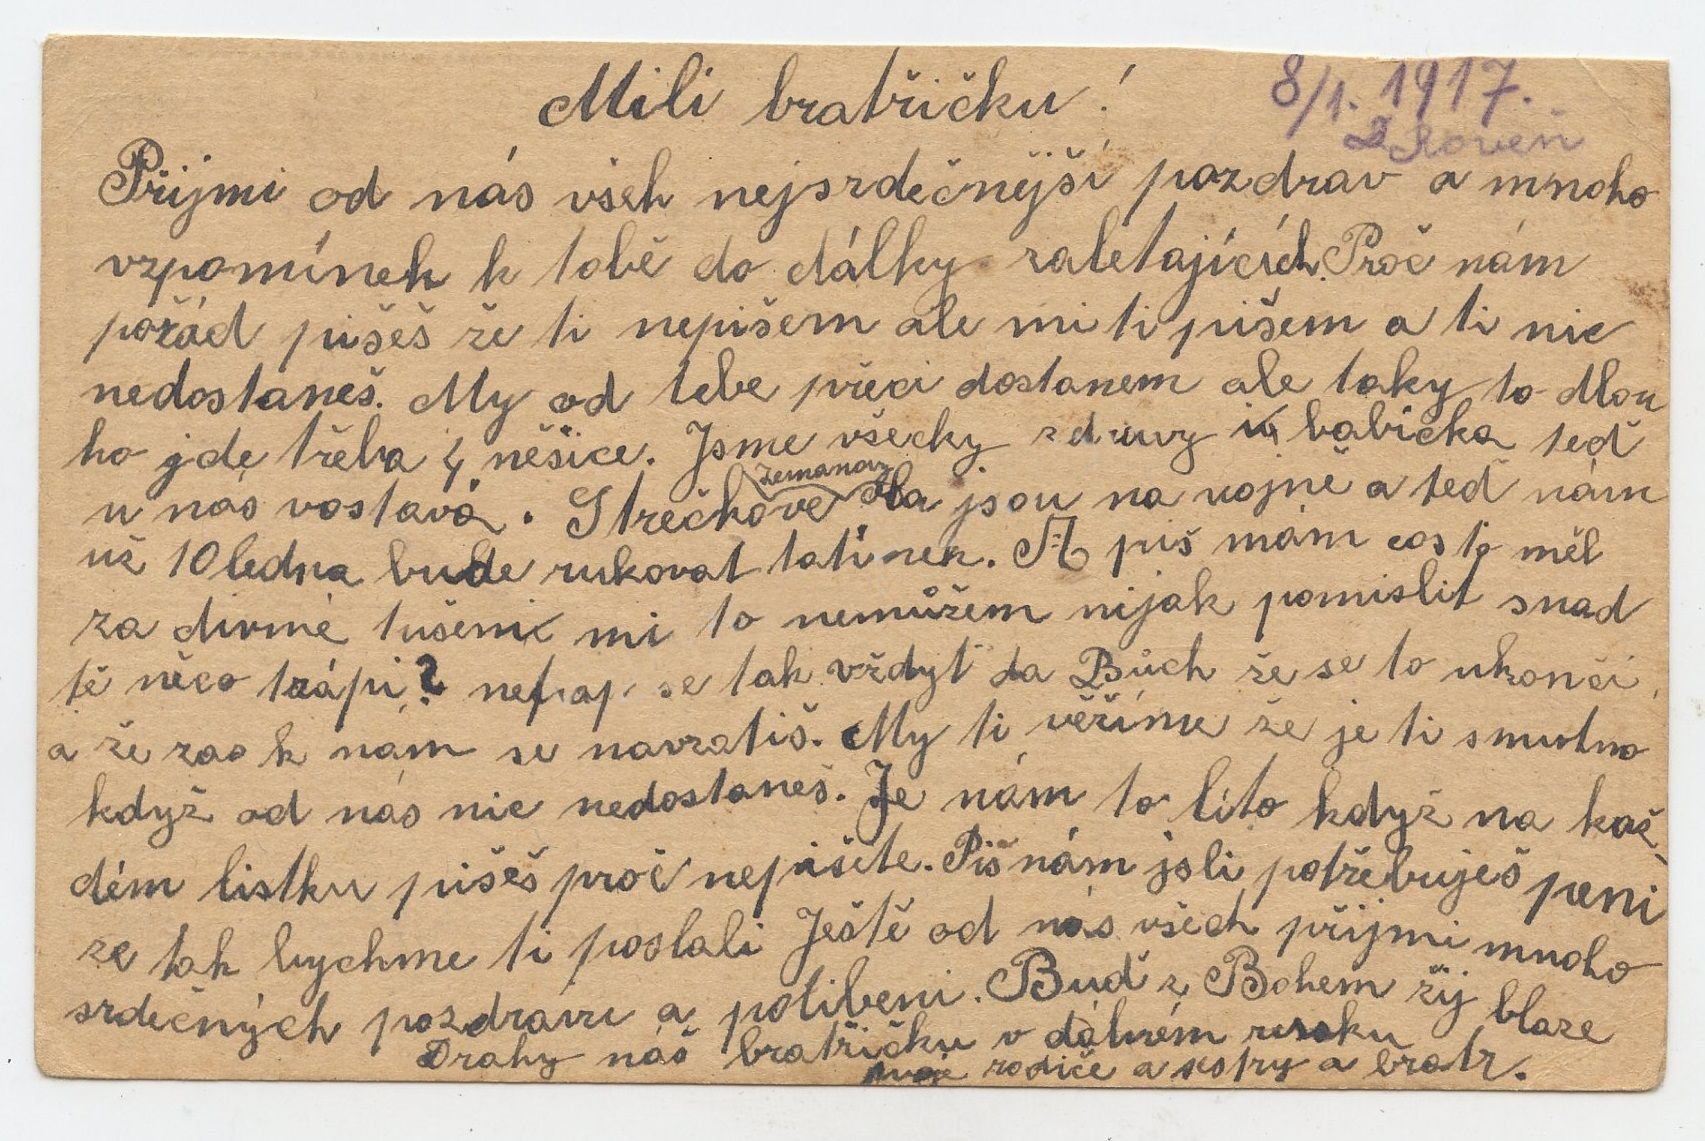 Mili bratřičku!
8/1. 1917.
Roveň
Přijmi od nás všeh nejsrdečnější pozdrav a mnoho
vzpomínek k tobě do dálky zaletajících. Proč nám
pořád pišeš že ti nepišem ale mi ti pišem a ti nic
nedostaneš. My od tebe přeci dostanem ale taky to dlou
ho jde třeba 4 něšice. Jsme všecky zdravy i babička teď
u nás vostavá. Strečkove Zemanovz jsou na vojně a teď nám
už 10 ledna bude rukovat tatínek. A piš mám cos to měl
za divné tušeni mi to nemůžem nijak pomislit snad
tě něco trápi? netrap se tak vždyť da Bůch že se to ukonči,
a že zas k nám se navratiš. My ti věříme že je ti smutno
když od nás nic nedostaneš. Je nám to líto když na kaž-
dém listku pišeš proč nepišete. Piš nám jsli potřebuješ peni
ze tak bychme ti poslali Ješté od nás všech přijmi mnoho
srdečných pozdravu a polibeni. Buď z Bohem žij blaze
Drahy náš bratřičku v dálném rusku
rodiče a sestry a bratr.